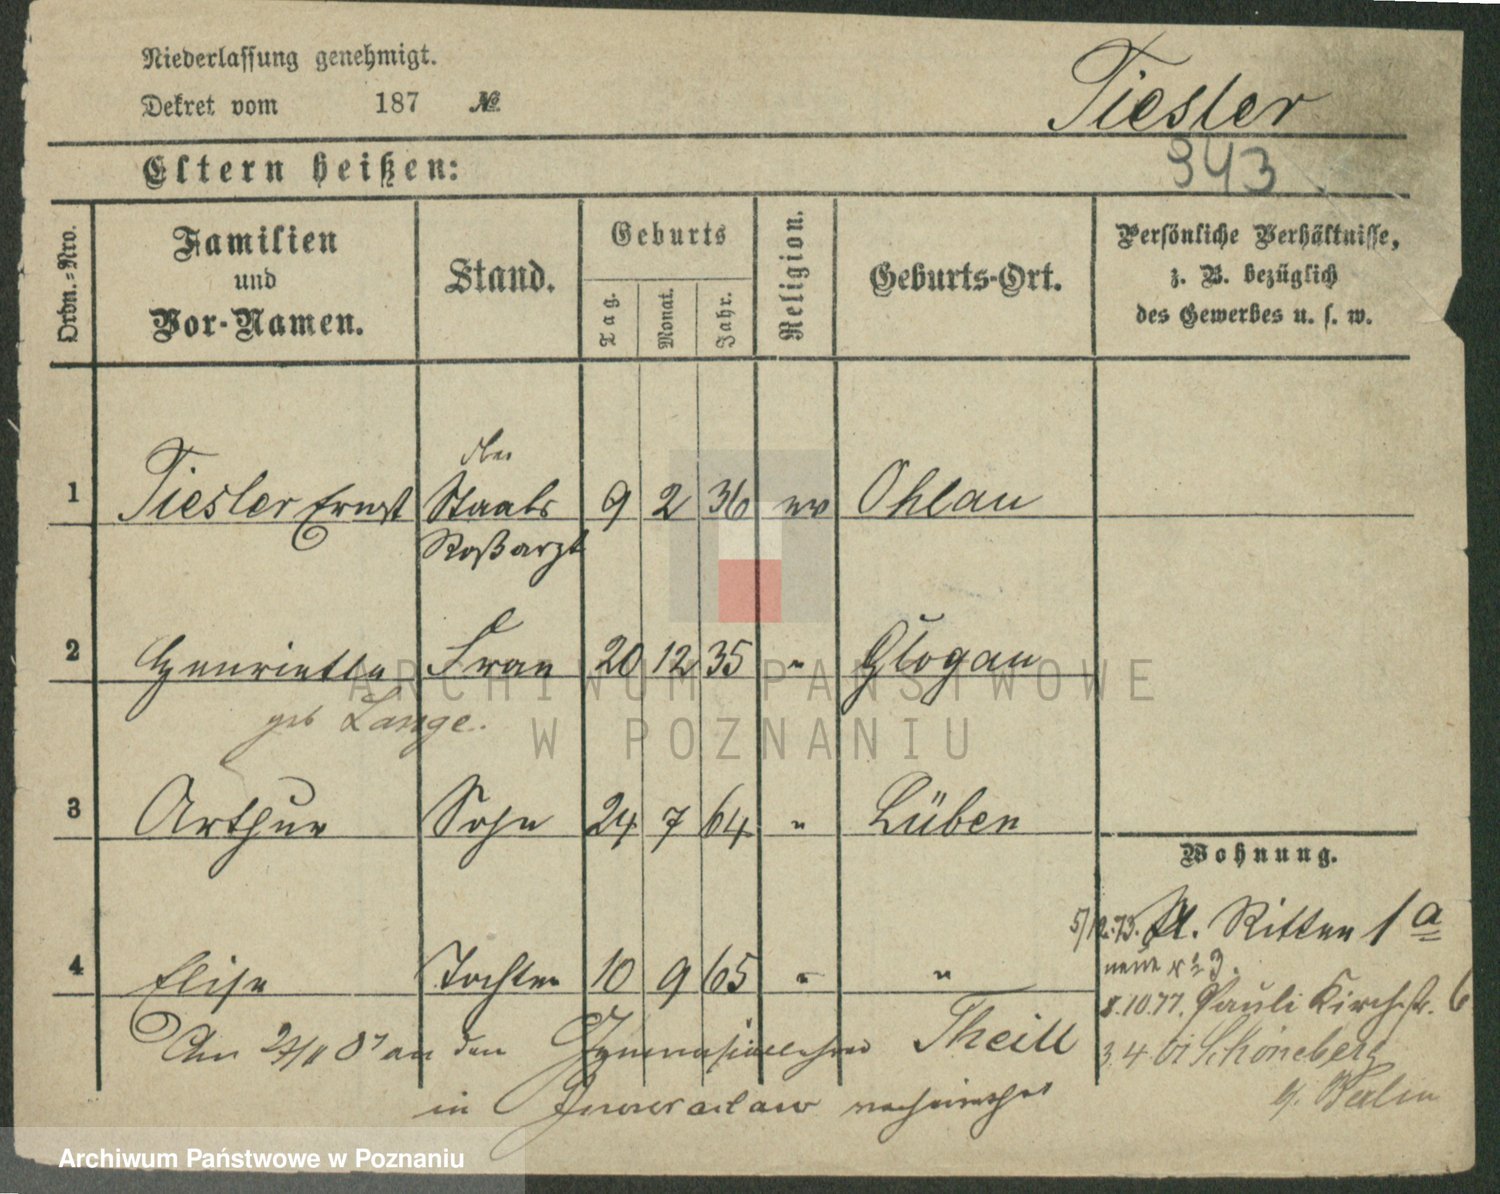 Niederlassung genehmigt.
Dekret vom 187 №
Tiesler
943
Eltern heißen:
Ordn.-Nro.
Familien und Vor-Namen.
Stand.
Geburts
Tag.
Monat.
Jahr.
Religion.
Geburts-Ort.
Persönliche Verhältnisse,
z. B. bezüglich
des Gewerbes u. s. w.
Ober
1 Tiesler Ernst Staabs 9 2 36 ev Ohlau
Roßarzt
2 Henriette Frau 20 12 35 " Glogau
geb Lange.
3 Arthur Sohn 24 7 64 " Lüben
Wohnung.
5/12.73. Kl. Ritter 1 a
neue № 3.
4 Elise Tochter 10 9 65 " "
8.10.77. Pauli Kirchstr. 6
Am 24/11 87 an den Gymnasiallehrer Theill
3.4.01 Schöneberg
in Inowraclaw verheirathet
b/. Berlin
ARCHIWUM PAŃSTWOWE
W POZNANIU
Archiwum Państwowe w Poznaniu